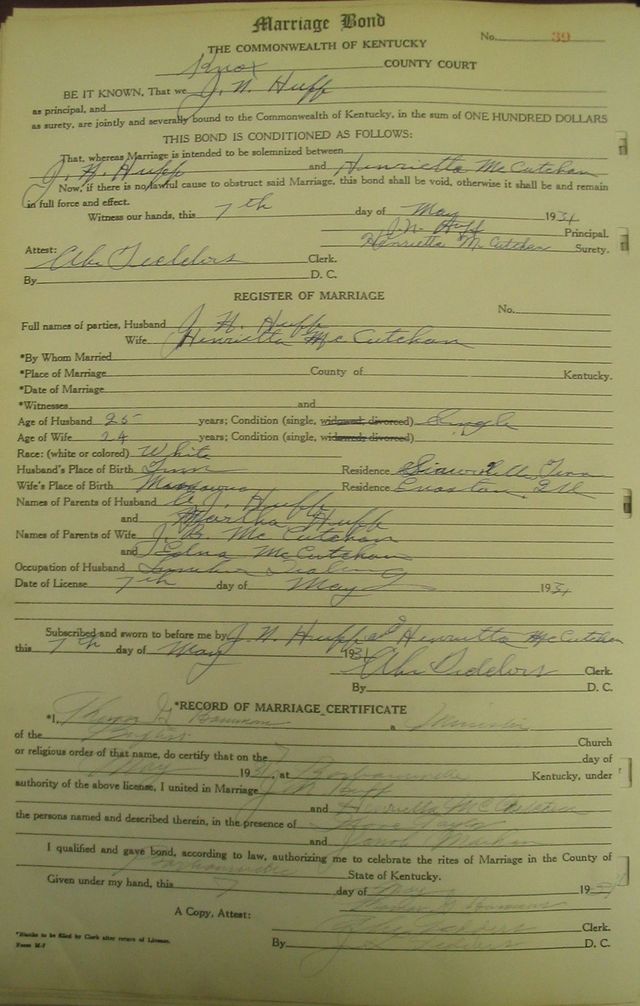 Marriage Bond
No. 39
THE COMMONWEALTH OF KENTUCKY
Knox COUNTY COURT
BE IT KNOWN, That we J. N. Huff
as principal, and
as surety, are jointly and severally bound to the Commonwealth of Kentucky, in the sum of ONE HUNDRED DOLLARS
THIS BOND IS CONDITIONED AS FOLLOWS:
That, whereas Marriage is intended to be solemnized between
J. N. Huff and Henrietta McCutchan
Now, if there is no lawful cause to obstruct said Marriage, this bond shall be void, otherwise it shall be and remain
in full force and effect.
Witness our hands, this 7th day of May 1931
J. N. Huff Principal.
Henrietta McCutchan Surety.
Attest:
Clerk.
By D. C.
REGISTER OF MARRIAGE
No.
Full names of parties, Husband J. N. Huff
Wife Henrietta McCutchan
*By Whom Married
*Place of Marriage County of Kentucky.
*Date of Marriage
*Witnesses and
Age of Husband 25 years; Condition (single, widowed, divorced) Single
Age of Wife 24 years; Condition (single, widowed, divorced)
Race: (white or colored) White
Husband's Place of Birth Tenn Residence Tenn
Wife's Place of Birth Residence Ill
Names of Parents of Husband J. Huff
and Martha Huff
Names of Parents of Wife J. B. McCutchan
and Edna McCutchan
Occupation of Husband
Date of License 7th day of May 1931
Subscribed and sworn to before me by J. N. Huff and Henrietta McCutchan
this 7th day of May 1931
Clerk.
By D. C.
*RECORD OF MARRIAGE CERTIFICATE
*I, a Minister
of the Baptist Church
or religious order of that name, do certify that on the 7 day of
May 1931, at Barbourville Kentucky, under
authority of the above license, I united in Marriage J. N. Huff
and Henrietta McCutchan
the persons named and described therein, in the presence of
and
I qualified and gave bond, according to law, authorizing me to celebrate the rites of Marriage in the County of
State of Kentucky.
Given under my hand, this 7 day of May 1931
A Copy, Attest:
Clerk.
By D. C.
*Blanks to be filled by Clerk after return of License.
Form M-7